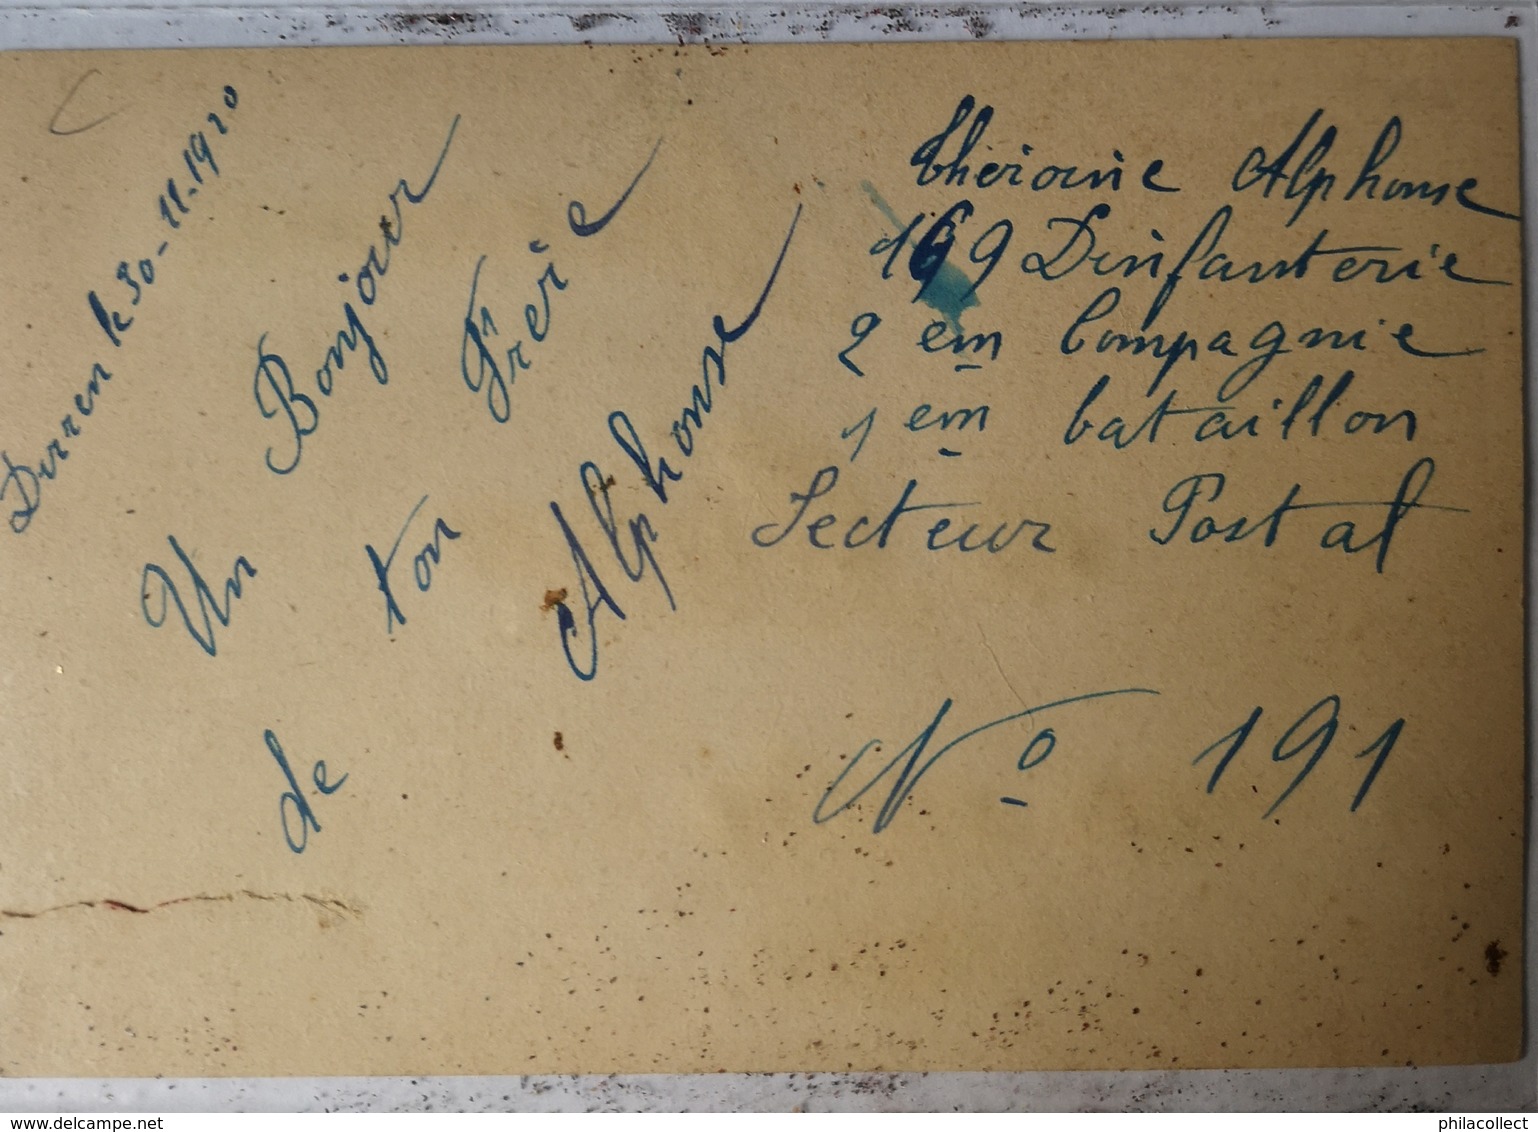 Durren le 30-11-1920
Un Bonjour
de ton Frère
Alphonse
Alphonse
169 Dinfanterie
2 em Compagnie
1 em bataillon
Secteur Postal
No 191
philacollect
www.delcampe.net